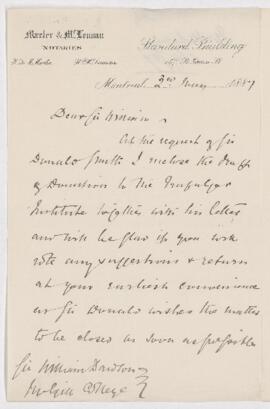 Marler & McLennan
NOTARIES
Standard Building
157 St. James St.
W. de M. Marler
Montreal 2nd May 1887
Dear Sir William,
At the request of Sir
Donald Smith I inclose the Draft
of Donation to the Trafalgar
Institute together with his letter
and will be glad if you will
note any suggestions & return
at your earliest convenience
as Sir Donald wishes the matter
to be closed as soon as possible
Sir William Dawson
McGill College